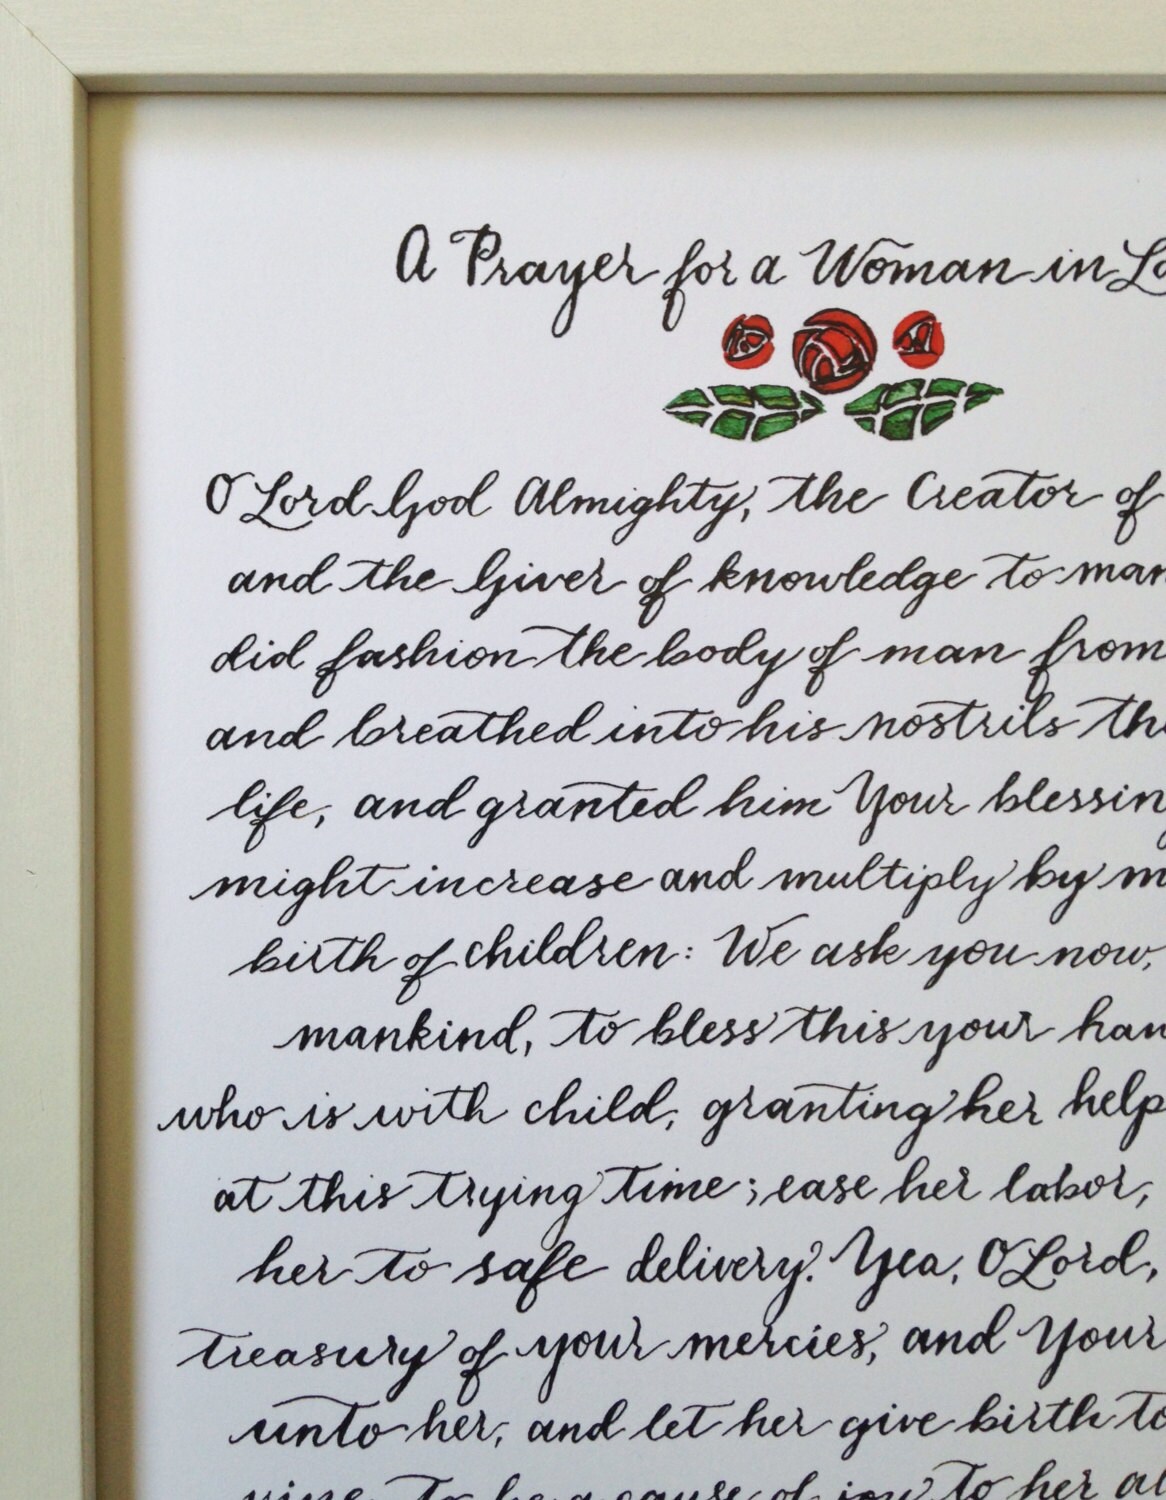 A Prayer for a Woman in
O Lord God Almighty, the Creator of
and the Giver of knowledge to
did fashion the body of man from
and breathed into his nostrils
life, and granted him Your
might increase and multiply by
birth of children: We ask you now,
mankind, to bless this your
who is with child, granting her help
at this trying time; ease her labor,
her to safe delivery. Yea, O Lord,
treasury of your mercies, and Your
unto her, and let her give birth to
vine, to be a cause of joy to her